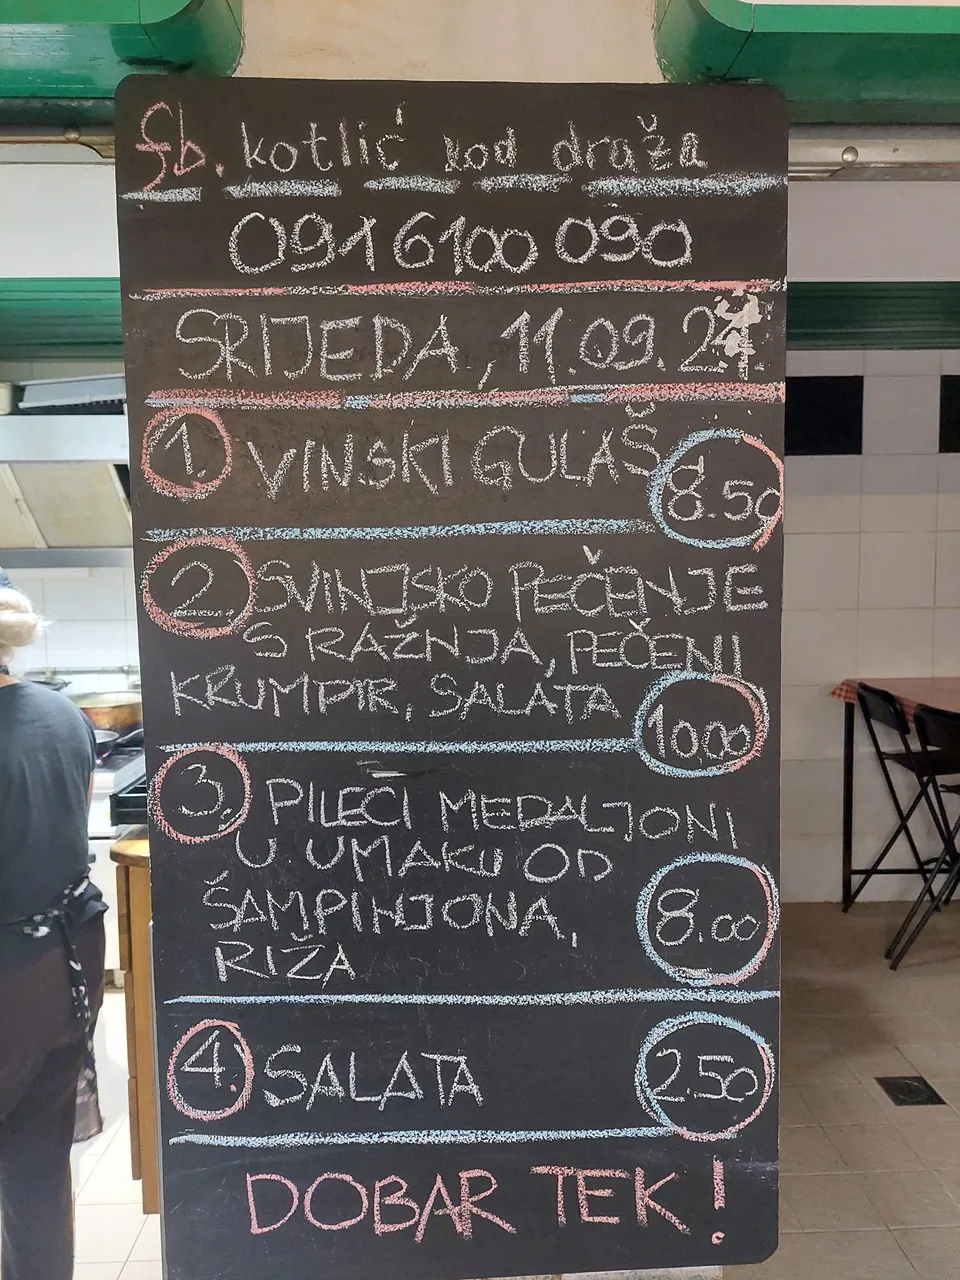 fb. kotlić kod draža
091 6100 090
SRIJEDA, 11.09.24.
1. VINSKI GULAŠ 8.50
2. SVINJSKO PEČENJE
S RAŽNJA, PEČENI
KRUMPIR, SALATA 10,00
3. PILEĆI MEDALJONI
U UMAKU OD
ŠAMPINJONA, 8.00
RIŽA
4. SALATA 2.50
DOBAR TEK!